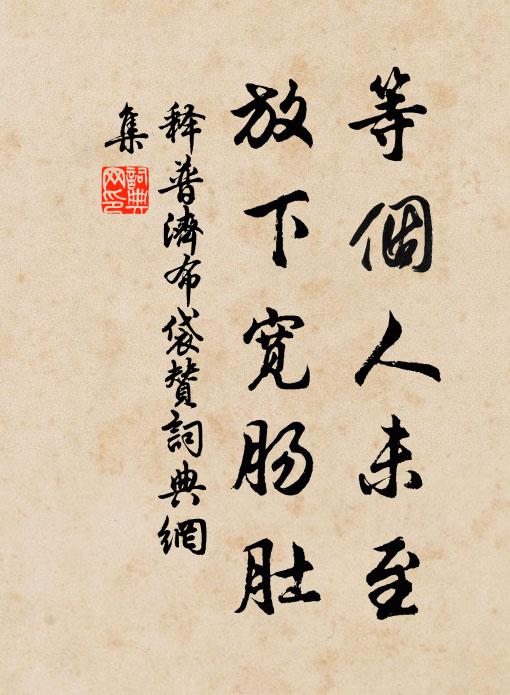 等個人未至
放下寬肠肚
释普濟布袋赞詞典網
集
詞典网印